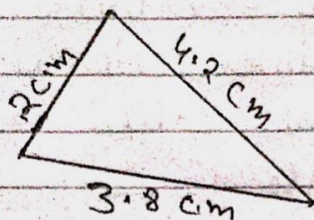 2cm
4.2 cm
3.8 cm